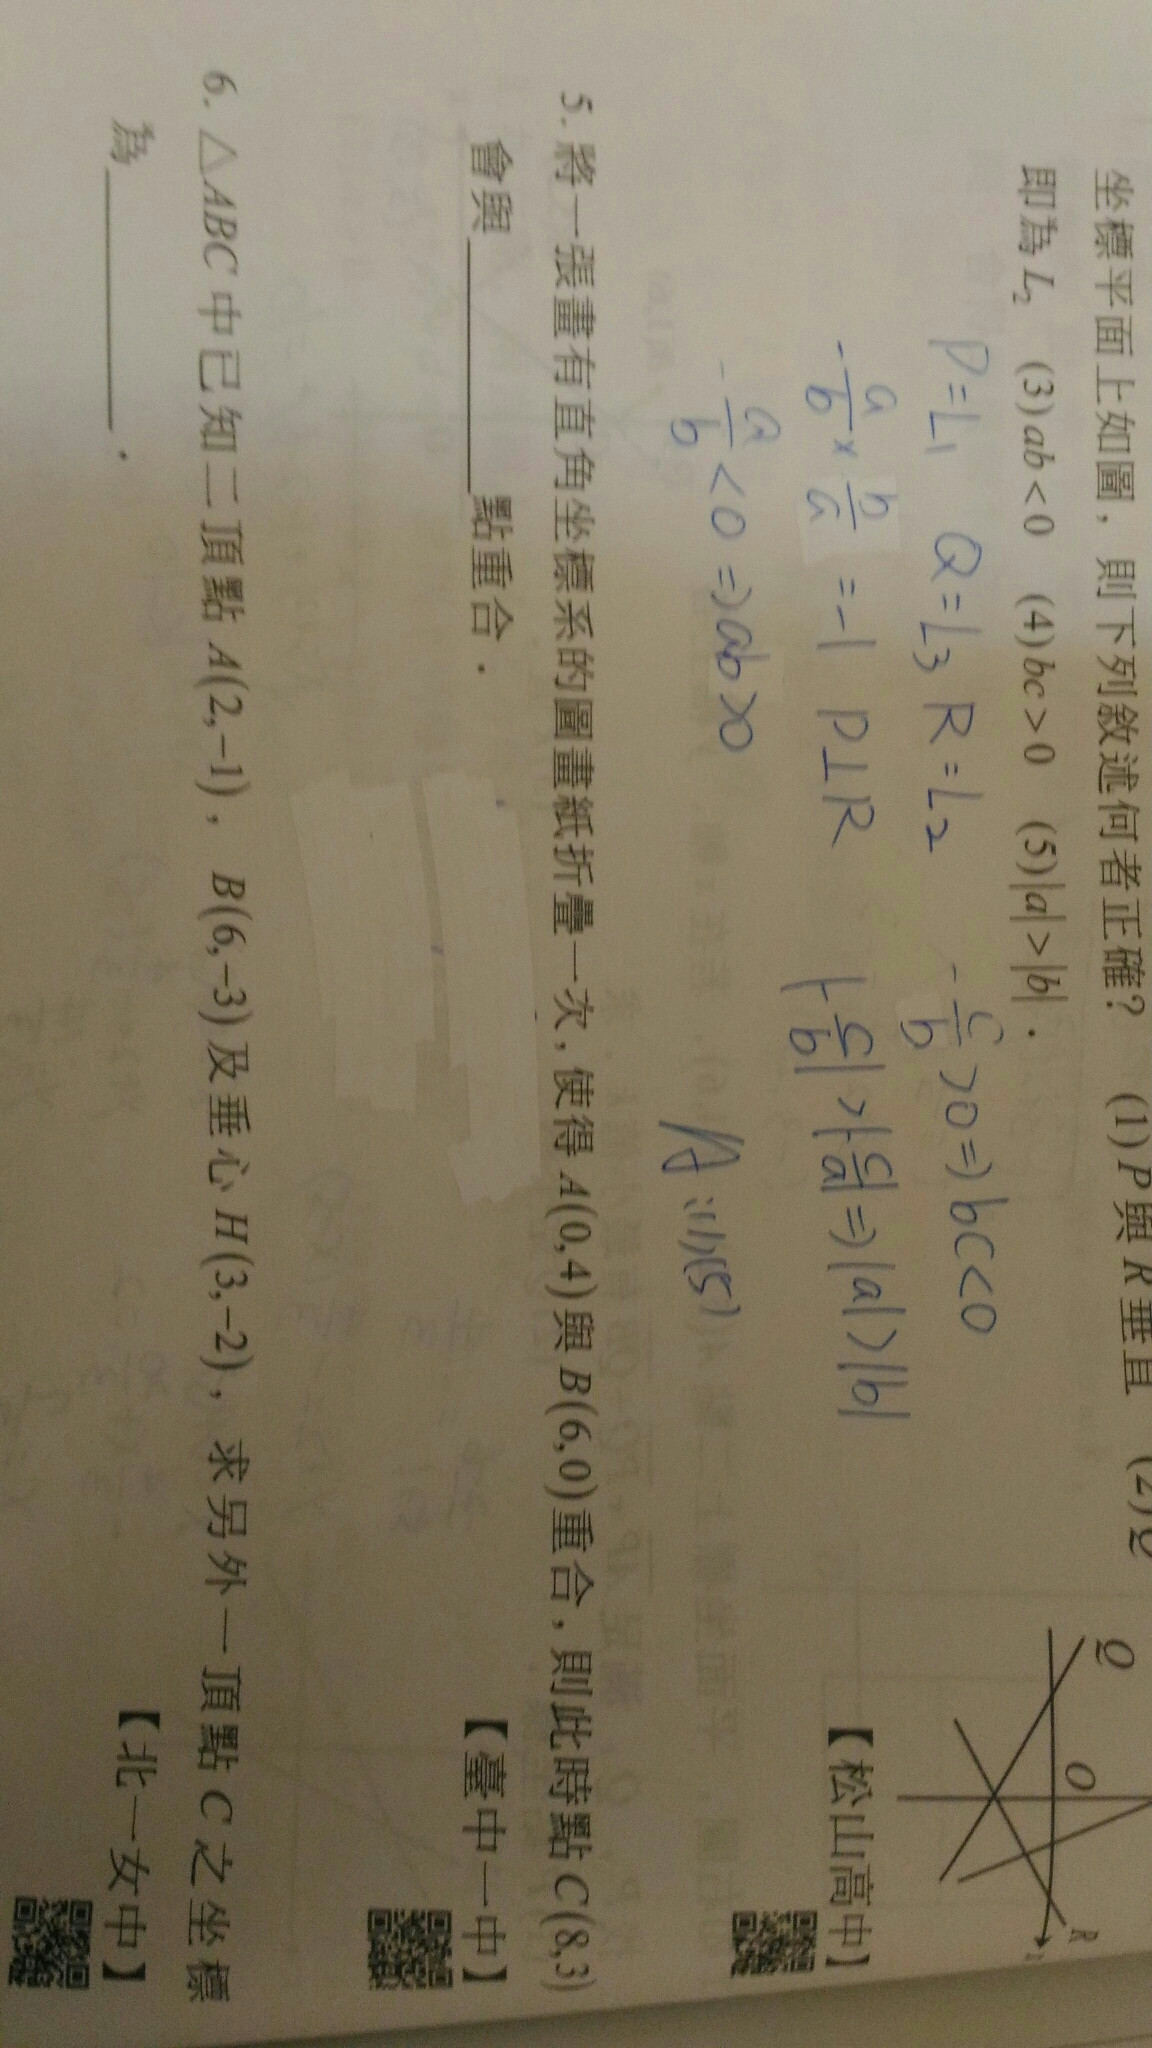 坐標平面上如圖，則下列敘述何者正確？ (1)P與R垂直 (2)Q
即為L₂ (3)ab<0 (4)bc>0 (5)|a|>|b|．
P=L₁ Q=L₃ R=L₂
-c/b>0⇒bc<0
-a/b×b/a=-1 P⊥R
|-c/b|>|-c/a|⇒|a|>|b|
-a/b<0⇒ab>0
A:(1)(5)
Q
O
R
【松山高中】
5. 將一張畫有直角坐標系的圖畫紙折疊一次，使得A(0,4)與B(6,0)重合，則此時點C(8,3)
會與______點重合．
【臺中一中】
6. △ABC中已知二頂點A(2,-1)，B(6,-3)及垂心H(3,-2)，求另外一頂點C之坐標
為______．
【北一女中】